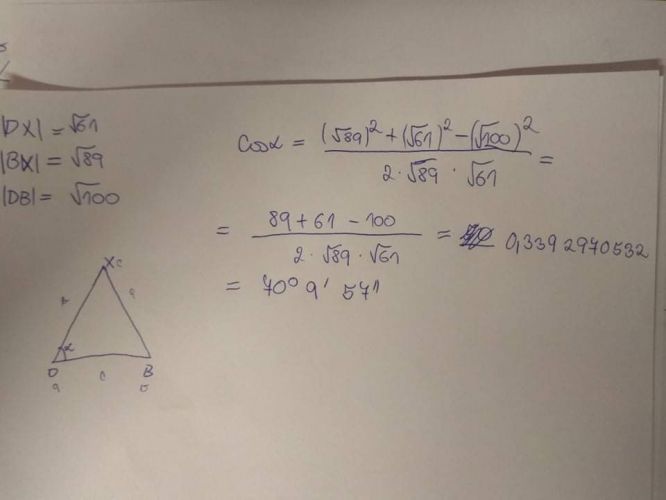 |DX| = √61
|BX| = √89
|DB| = √100
cos α = (√89)² + (√61)² - (√100)² / 2·√89 · √61 =
= 89 + 61 - 100 / 2·√89·√61 = 0,3392970532
= 70° 9' 57"
X C
α
D
B
c